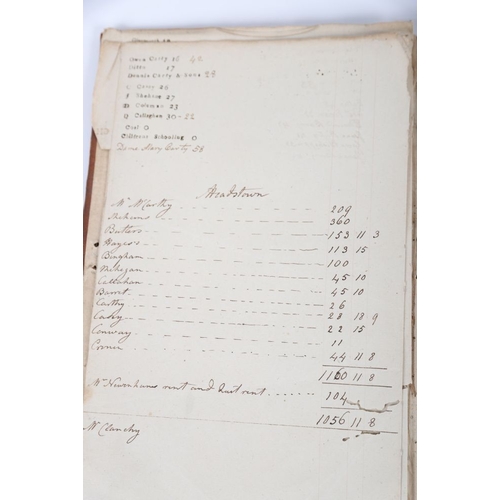 Owen Carty 16 42
Ditto 17
Dennis Carty & Sons 28
C Carty 26
F Shehane 27
D Coleman 23
Q Callaghan 30-22
Coal 0
Childrens Schooling 0
Dame Mary Carty 58
Meadstown
Mr McCarthy 209
Mehins 360
Butlers 153 11 3
Hayes 113 15
Bingham 100
Mehegan 45 10
Callahan 45 10
Barret 26
Carthy 28 18 9
Casey 22 15
Conway 11
Corner 44 11 8
1160 11 8
Mr Newenhams rent and Quit rent 104
1056 11 8
McClanchy